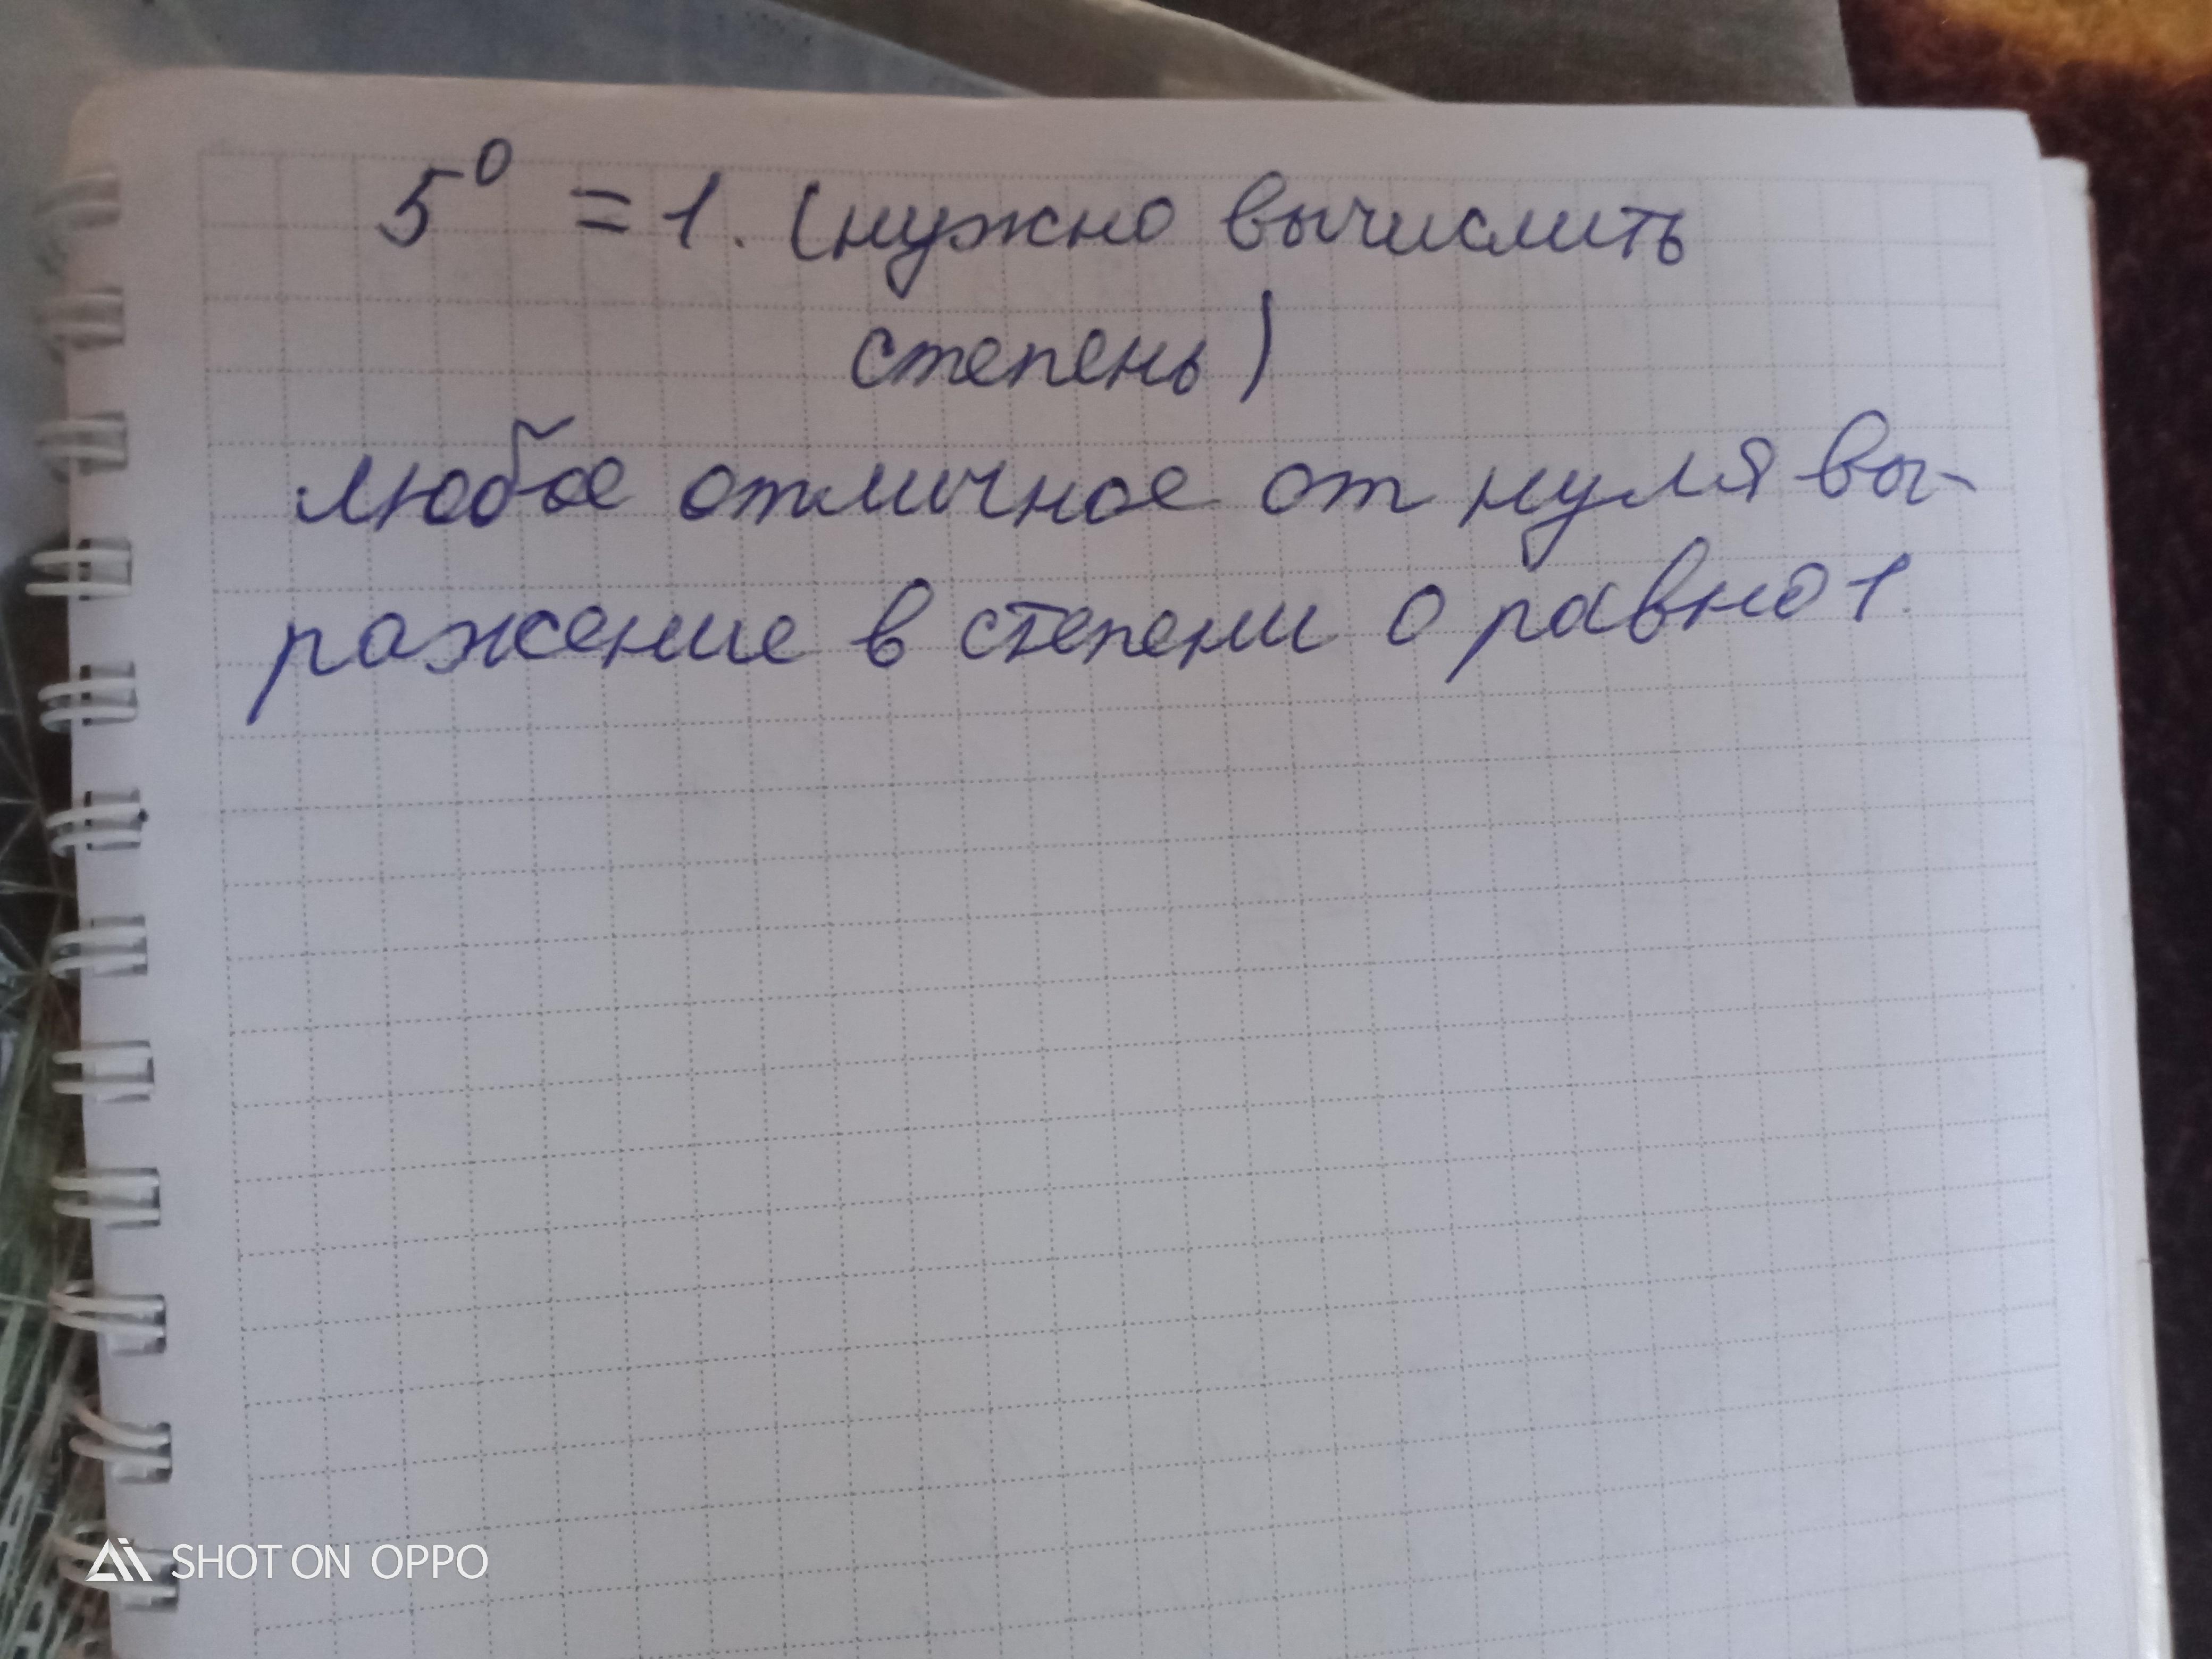 5⁰ = 1. (нужно вычислить
степень)
любое отличное от нуля вы-
ражение в степени 0 равно 1.
SHOT ON OPPO